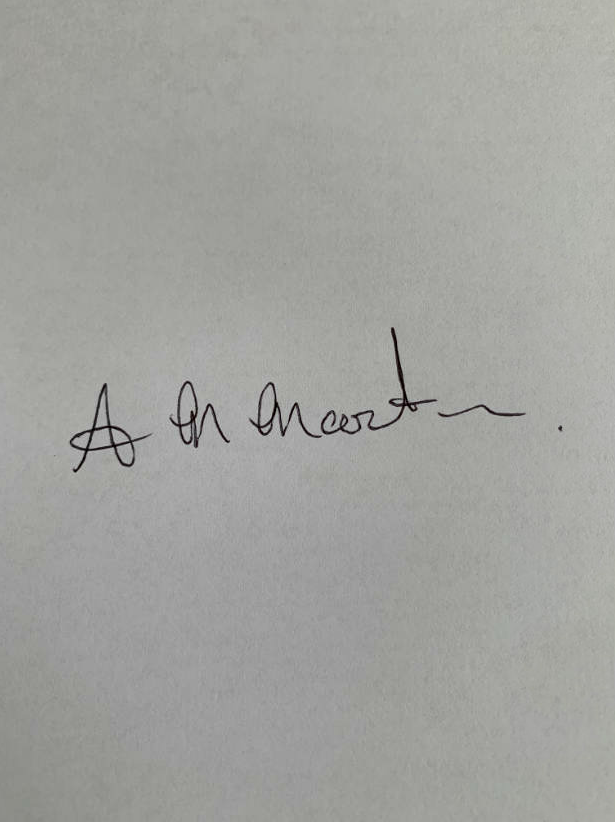 A M Martin.